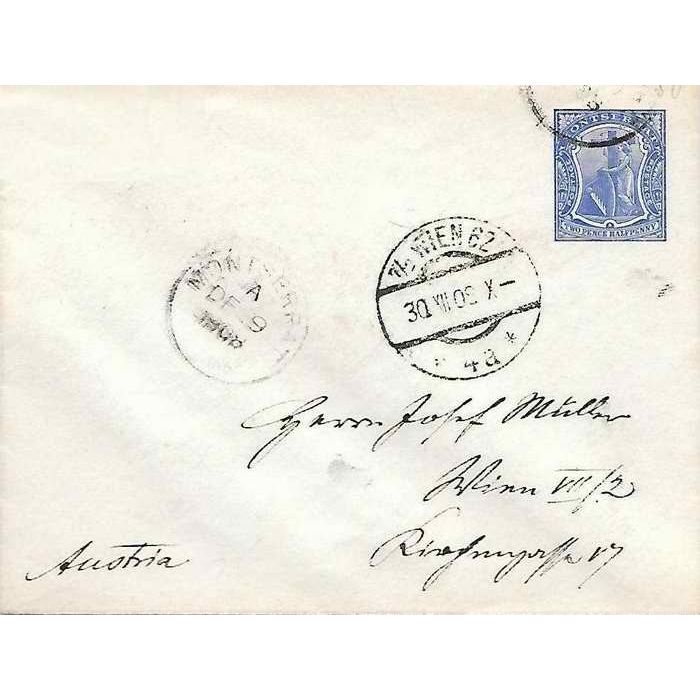 MONTSERRAT
TWO PENCE HALFPENNY
MONTSERRAT
A
DE 9
WIEN 62
30 XII 08 X-
* 4a *
Herrn Josef Müller
Wien VII/2
Kirchengasse 17
Austria